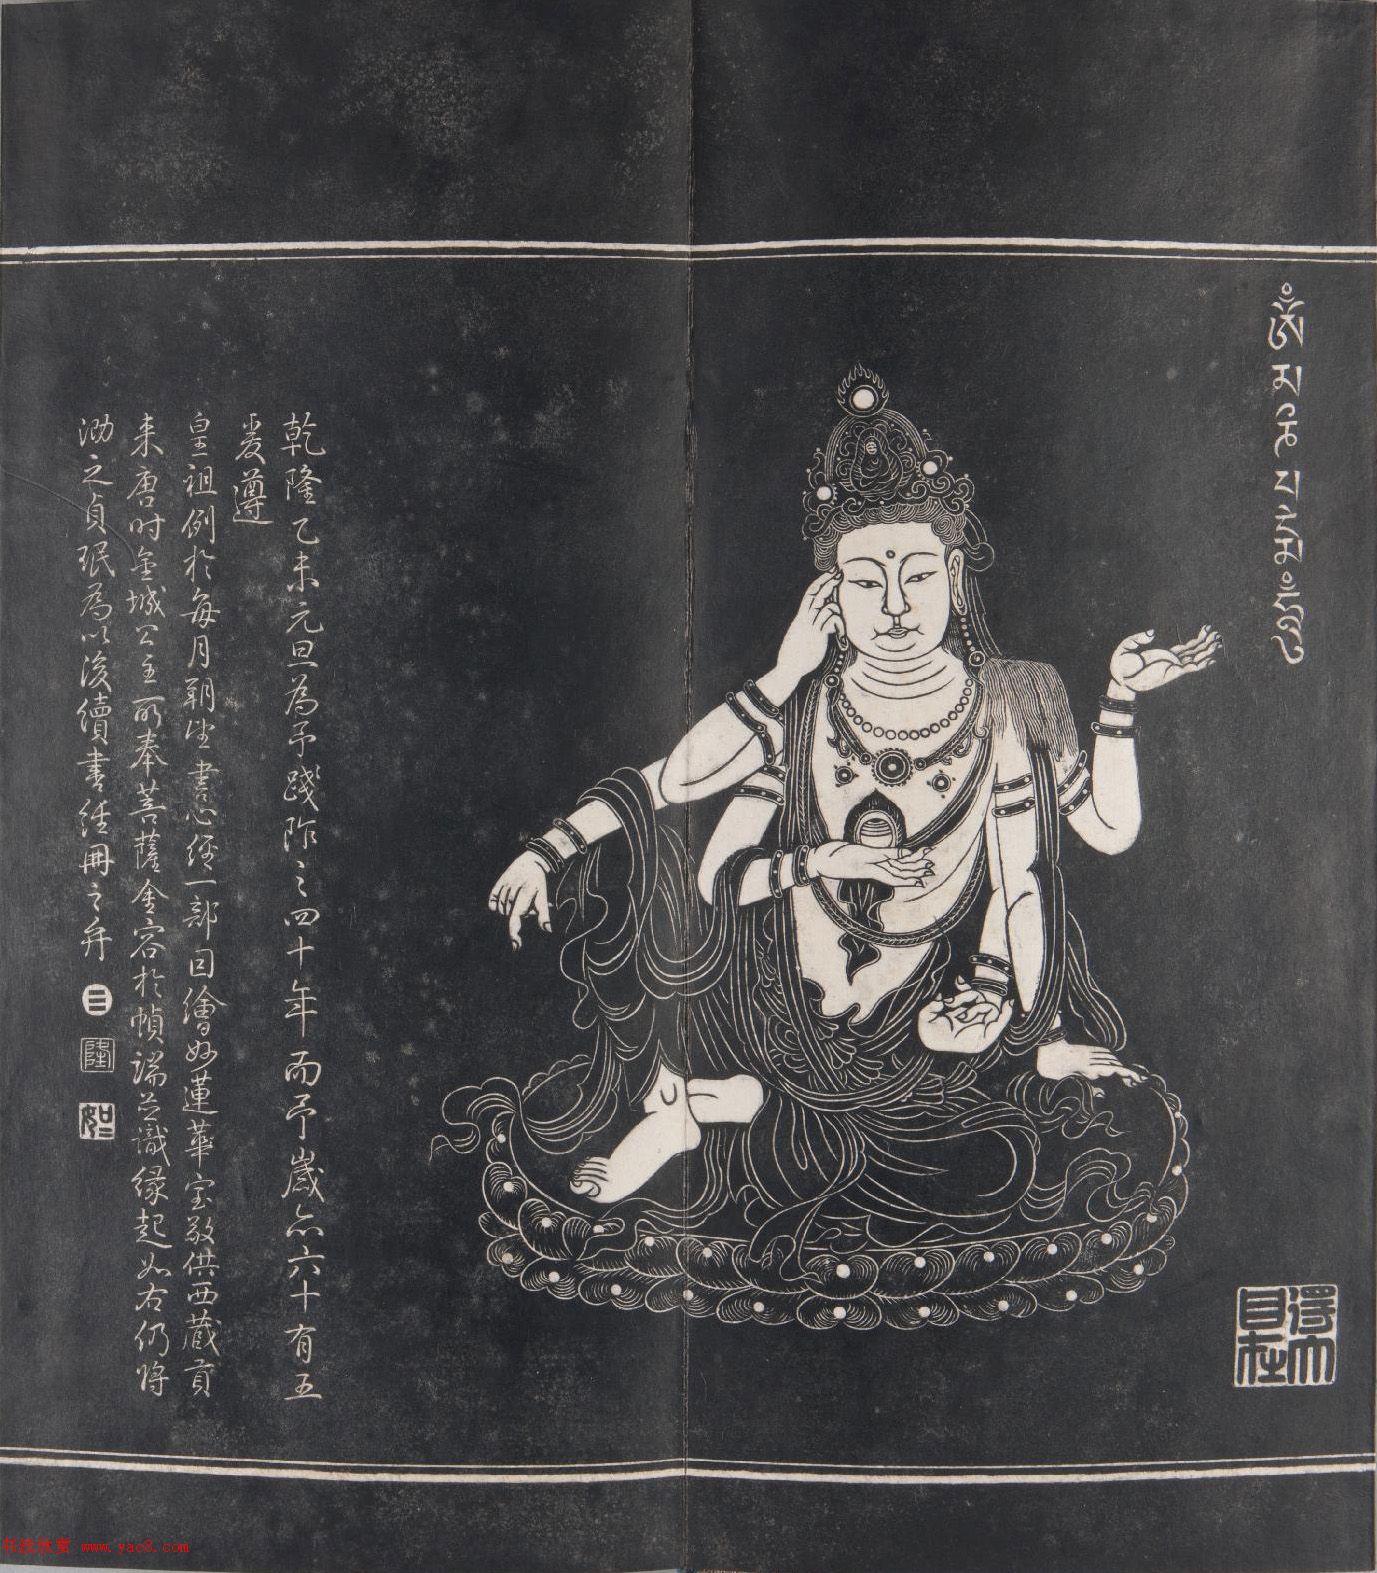 ༀ་མ་ཎི་པདྨེ་ཧཱུྃ
得大自在
乾隆乙未元旦為予踐阼之四十年而予歲亦六十有五
爰遵
皇祖例於每月朔望書心經一部因繪妙蓮華室敬供西藏貢
來唐時金城公主所奉菩薩金容於幀端並識緣起如右仍將
泐之貞珉為以後續書經冊之弁
三
隆
www.yac8.com